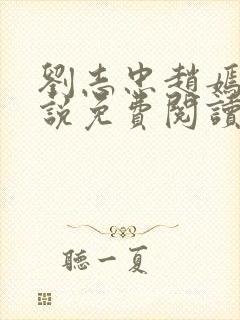 劉志忠趙嫣
說免費閱讀
聽一夏